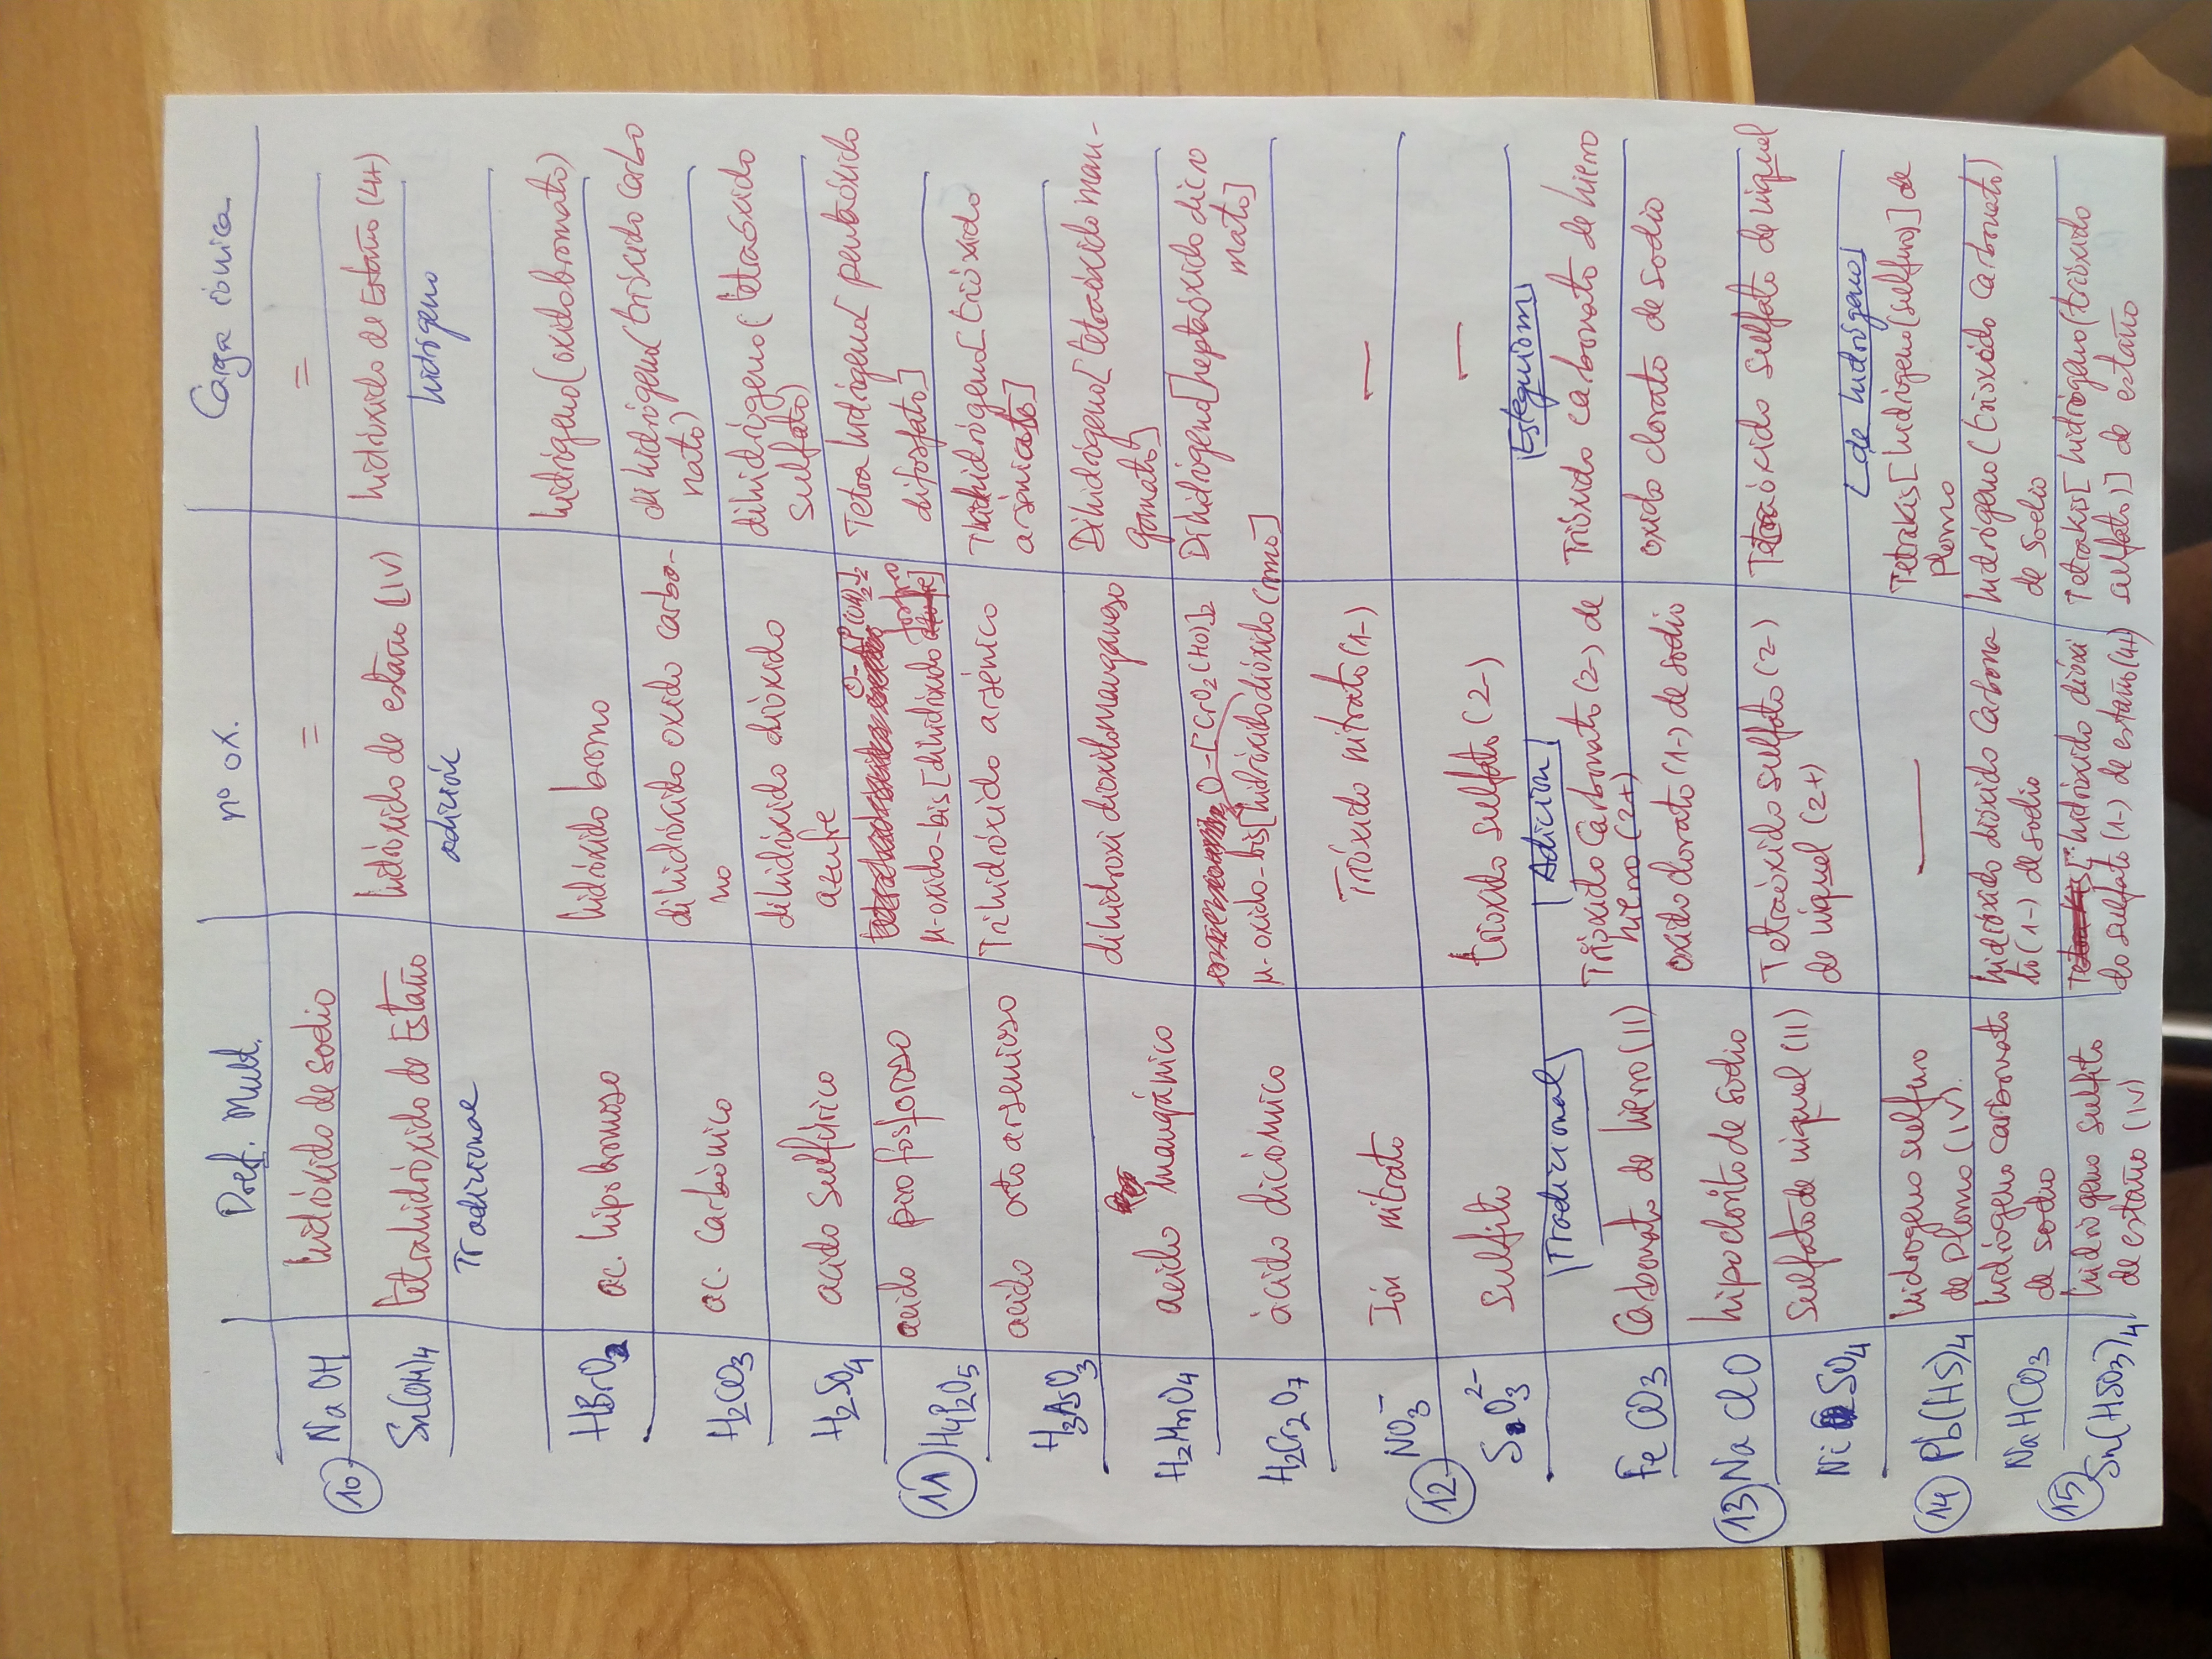 Pref. Mult. nº ox. Carga iónica
10 NaOH hidróxido de sodio = =
Sn(OH)4 tetrahidróxido de Estaño hidróxido de estaño (IV) hidróxido de Estaño (4+)
Tradicional adición hidrógeno
HBrO ac. hipobromoso hidróxido bromo hidrógeno(oxidobromato)
H2CO3 ac. carbónico dihidróxido oxido carbo- dihidrógeno(trióxido carbo
no nato)
H2SO4 acido sulfúrico dihidróxido dióxido dihidrógeno(tetraóxido
azufre sulfato)
O-[P(OH)2]2
11 H4P2O5 acido pirofosforoso μ-oxido-bis[dihidróxido fosforo] Tetra hidrógeno[pentaóxido
difosfato]
H3AsO3 acido orto arsenioso Trihidróxido arsénico Trihidrógeno[trióxido
arseniato]
H2MnO4 acido mangánico dihidroxi dioxidomanganeso Dihidrógeno[tetraóxido man-
ganato]
O-[CrO2(HO)]2
H2Cr2O7 ácido dicrómico μ-oxido-bis[hidróxidodióxido cromo] Dihidrógeno[heptaóxido dicro
mato]
12 NO3- Ión nitrato Trióxido nitrato(1-) —
SO3 2- sulfito trioxido sulfato(2-) —
Tradicional Adición Estequiom
FeCO3 Carbonato de hierro(II) Trióxido Carbonato(2-) de Trióxido carbonato de hierro
hierro(2+)
13 NaClO hipoclorito de sodio oxido clorato(1-) de sodio oxido clorato de sodio
NiSO4 sulfato de niquel (II) Tetraóxido sulfato(2-) Tetraóxido sulfato de niquel
de niquel (2+)
de hidrógeno
14 Pb(HS)4 hidrogeno sulfuro — Tetrakis[hidrógeno(sulfuro)] de
de plomo (IV). Plomo
NaHCO3 hidrógeno carbonato hidróxido dióxido Carbona hidrógeno(trióxido carbonato)
de sodio to(1-) de sodio de Sodio
15 Sn(HSO3)4 hidrógeno sulfito hidróxido dióxi Tetrakis[hidrógeno(trióxido
de estaño (IV) do sulfato(1-) de estaño(4+) sulfato)] de estaño